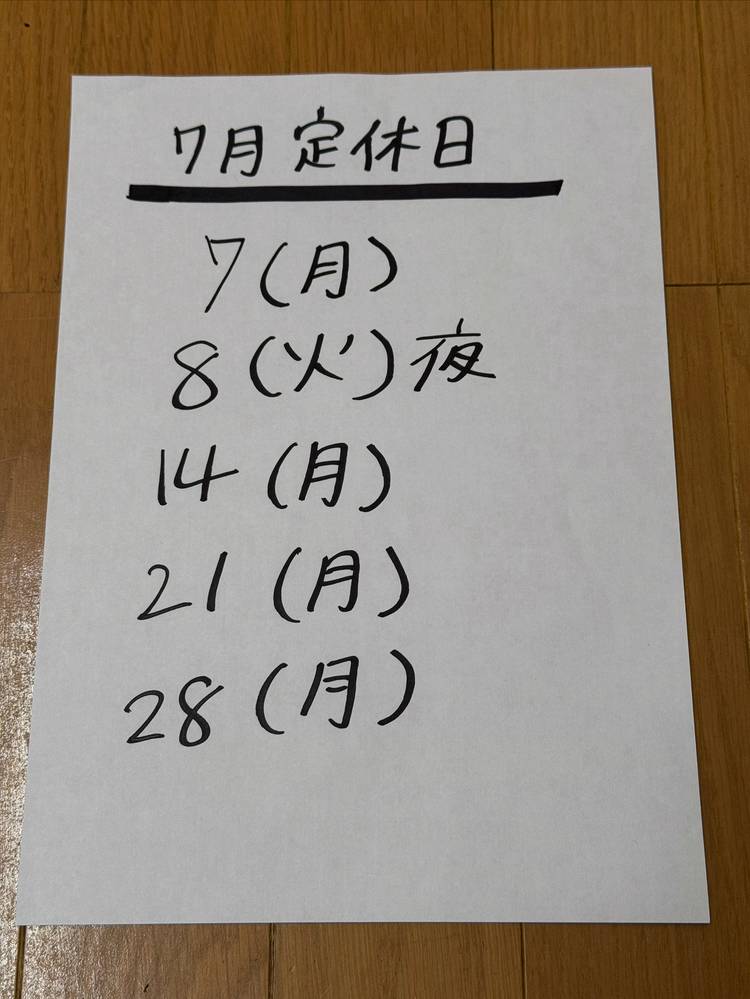 7月定休日
7(月)
8(火)夜
14(月)
21(月)
28(月)